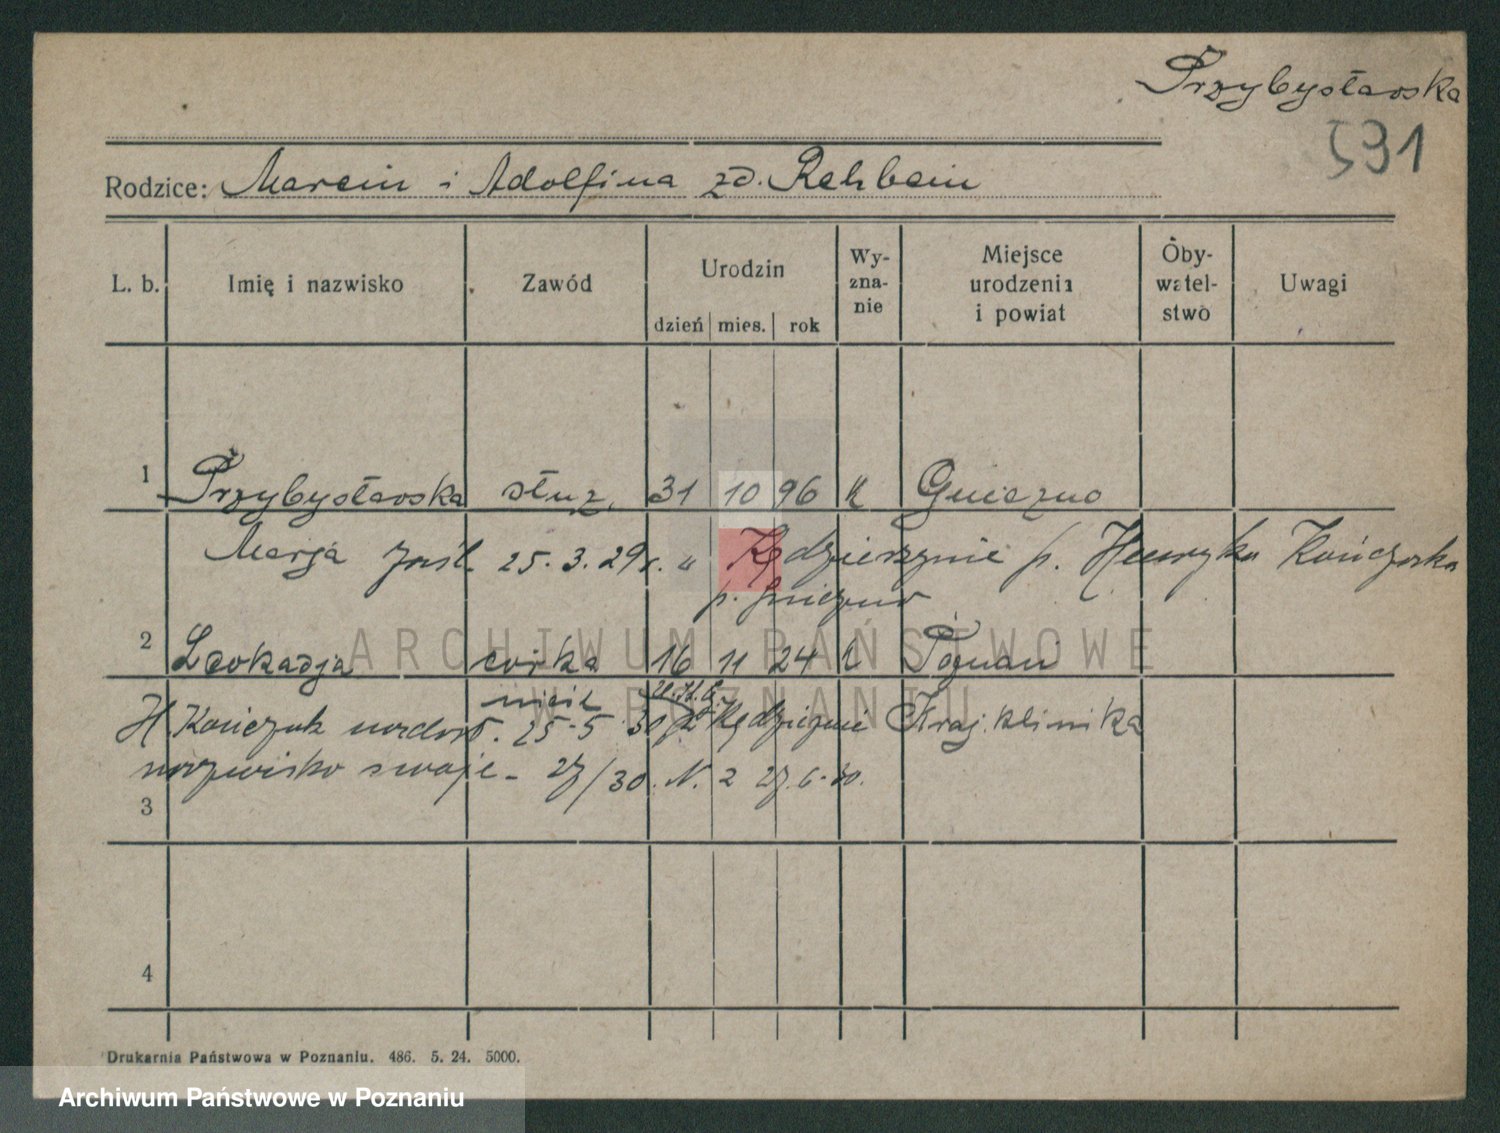 Przybysławska
591
Rodzice: Marcin i Adolfina zd. Rehbein
L. b. Imię i nazwisko Zawód Urodzin dzień mies. rok Wy-zna-nie Miejsce urodzenia i powiat Oby-watel-stwo Uwagi
1 Przybysławska służ. 31 10 96 k Gniezno
Marja 25. 3. 29 r. " Kędzierzynie p. Henryka Kończaka
p. Gniezno
2 Leokadja córka 16 11 24 k Poznań
H Kończak 25-5 30 Kraj. klinika
nazwisko swoje - 27/30. N. 2 27. 6. 30.
3
4
Drukarnia Państwowa w Poznaniu. 486. 5. 24. 5000.
ARCHIWUM PAŃSTWOWE
W POZNANIU
Archiwum Państwowe w Poznaniu